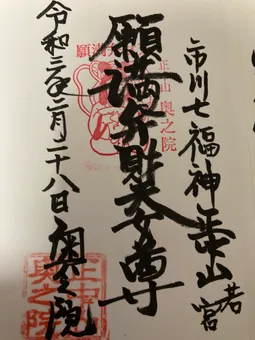 市川七福神 正中山 若宮
願満弁財天女尊
令和三年二月二十八日 奥之院
正中山 奥之院
正中山
奥之院